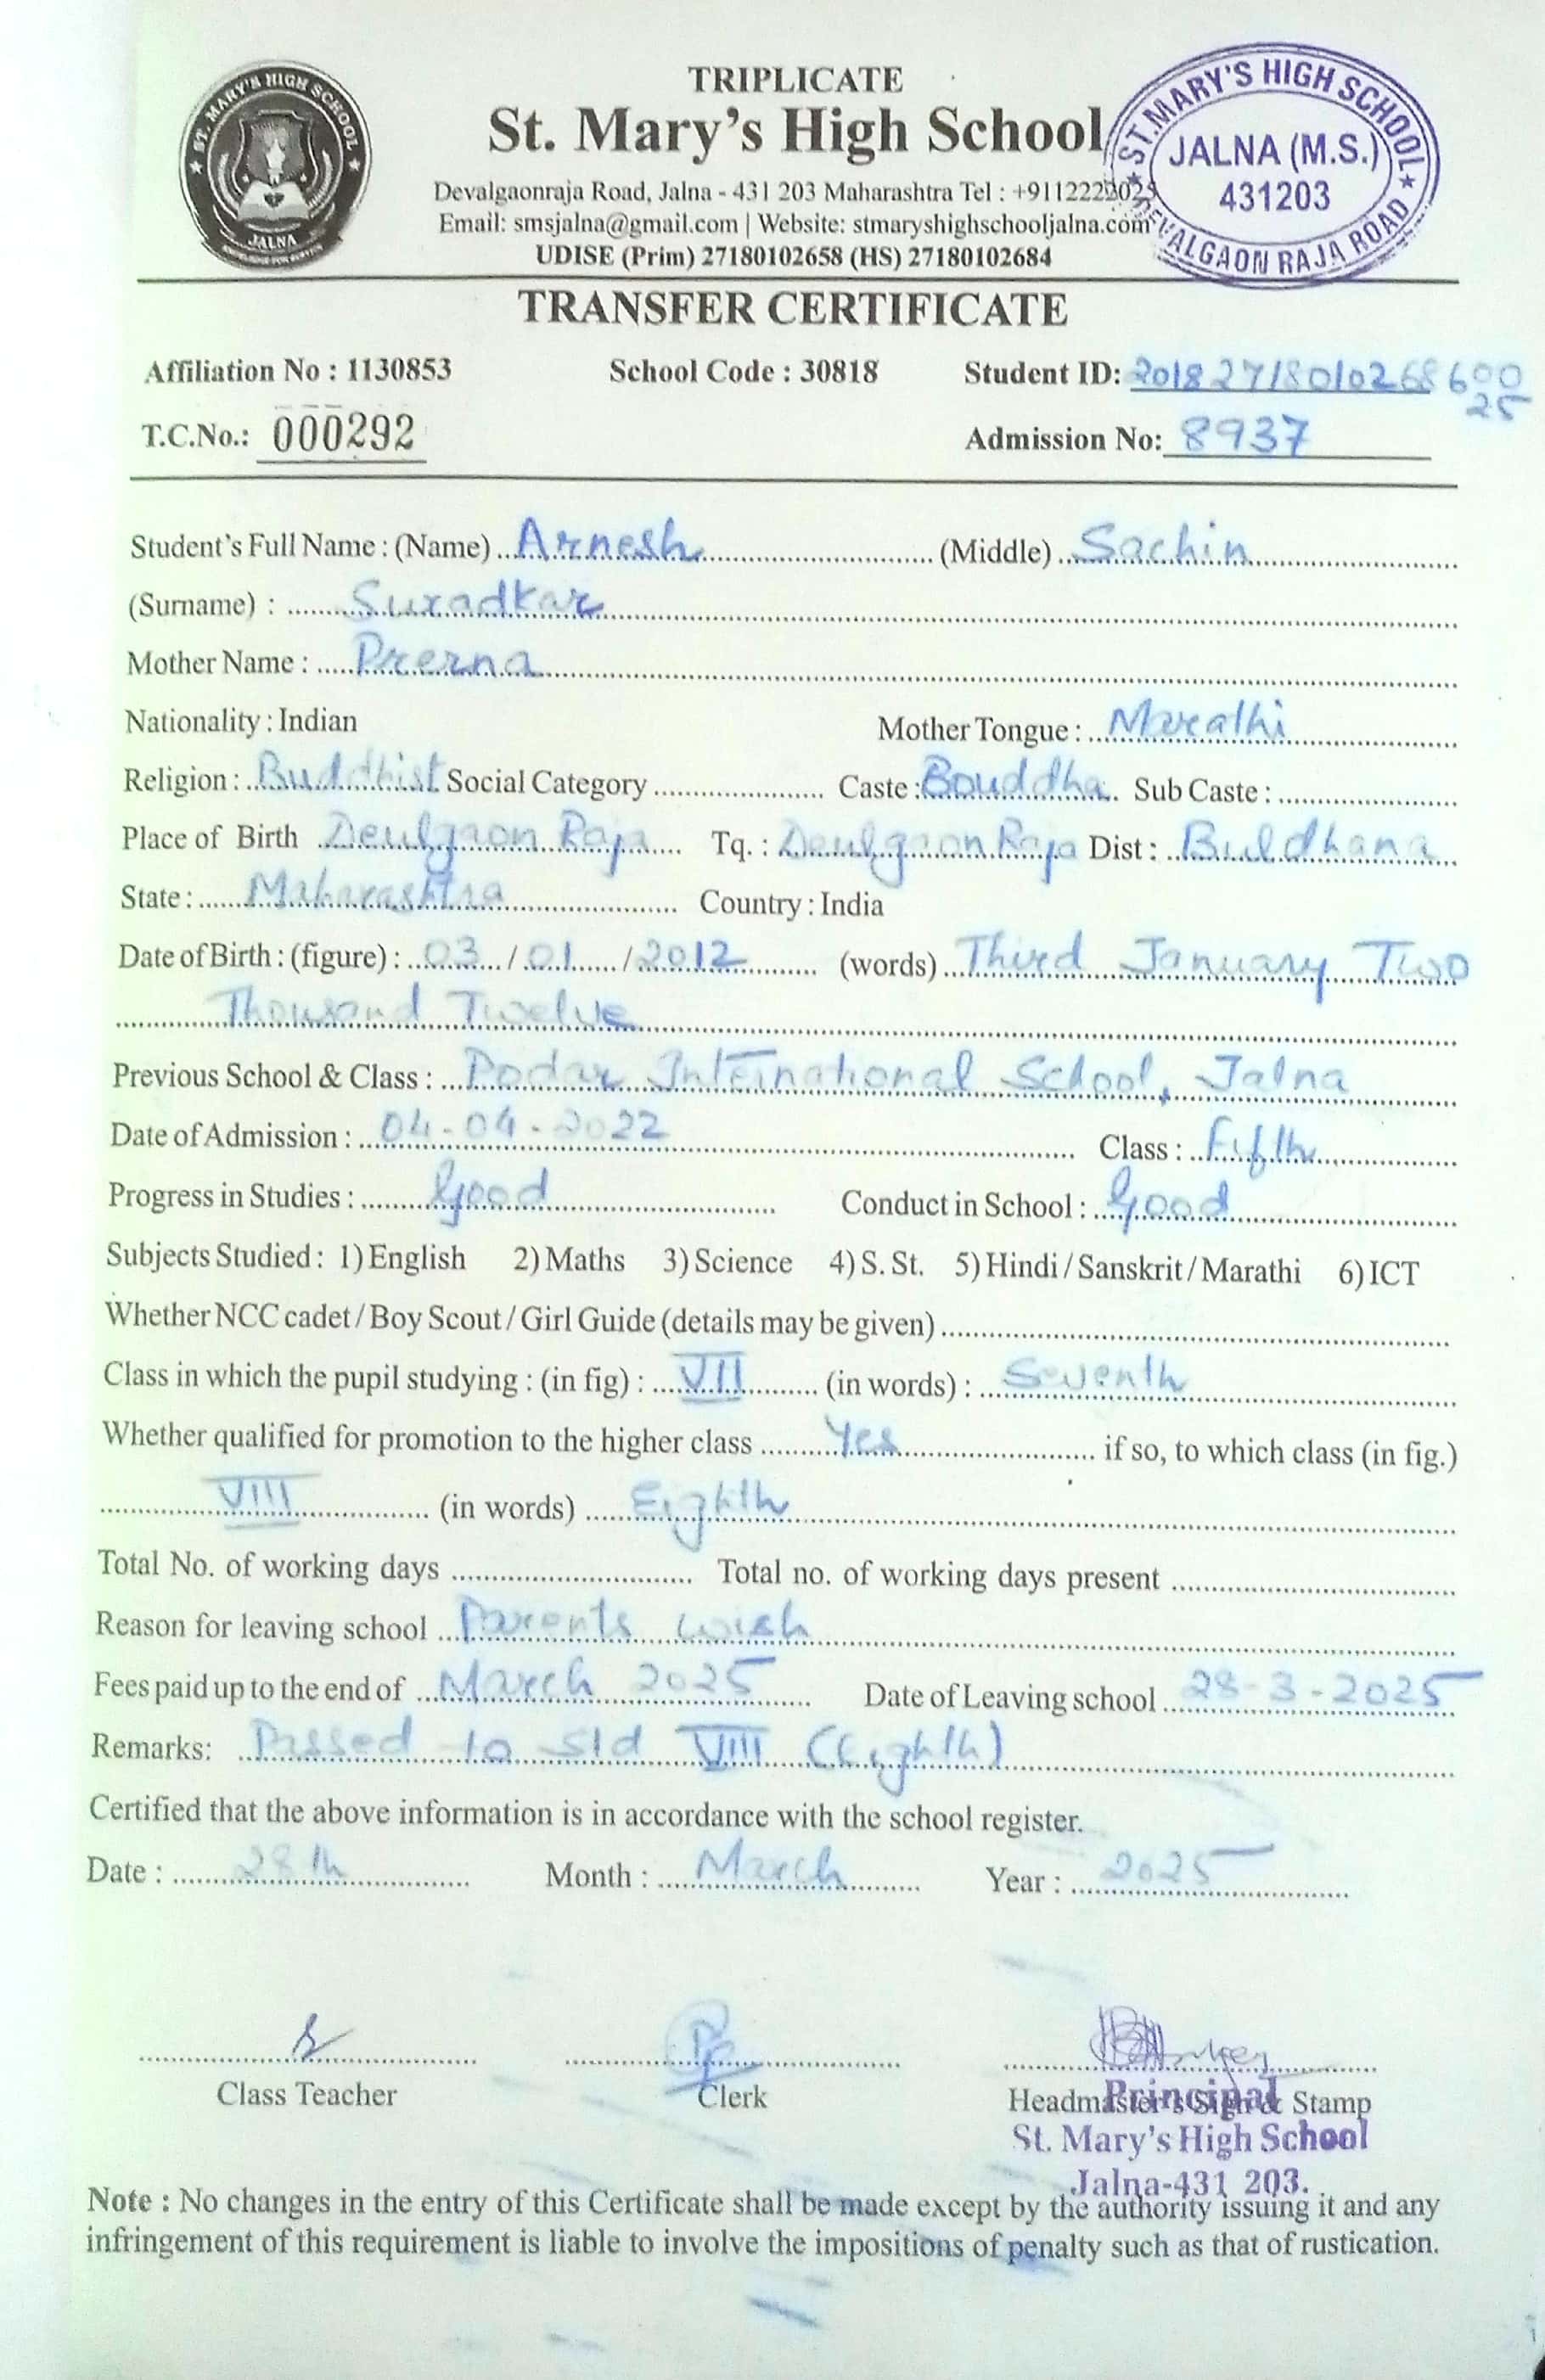 TRIPLICATE
St. Mary's High School
Devalgaonraja Road, Jalna - 431 203 Maharashtra Tel : +9112222025
Email: smsjalna@gmail.com | Website: stmaryshighschooljalna.com
UDISE (Prim) 27180102658 (HS) 27180102684
ST. MARY'S HIGH SCHOOL
JALNA
ST.MARY'S HIGH SCHOOL
JALNA (M.S.)
431203
DEVALGAON RAJA ROAD
TRANSFER CERTIFICATE
Affiliation No : 1130853 School Code : 30818 Student ID: 20182718010268600
25
T.C.No.: 000292 Admission No: 8937
Student's Full Name : (Name) Arnesh (Middle) Sachin
(Surname) : Suradkar
Mother Name : Prerna
Nationality : Indian Mother Tongue : Marathi
Religion : Buddhist Social Category Caste : Bouddha Sub Caste :
Place of Birth Deulgaon Raja Tq. : Deulgaon Raja Dist : Buldhana
State : Maharashtra Country : India
Date of Birth : (figure) : 03 / 01 / 2012 (words) Third January Two
Thousand Twelve
Previous School & Class : Podar International School, Jalna
Date of Admission : 04-04-2022 Class : Fifth
Progress in Studies : Good Conduct in School : Good
Subjects Studied : 1) English 2) Maths 3) Science 4) S. St. 5) Hindi / Sanskrit / Marathi 6) ICT
Whether NCC cadet / Boy Scout / Girl Guide (details may be given)
Class in which the pupil studying : (in fig) : VII (in words) : Seventh
Whether qualified for promotion to the higher class Yes if so, to which class (in fig.)
VIII (in words) Eighth
Total No. of working days Total no. of working days present
Reason for leaving school Parents wish
Fees paid up to the end of March 2025 Date of Leaving school 28-3-2025
Remarks: Passed to std VIII (Eighth)
Certified that the above information is in accordance with the school register.
Date : 28th Month : March Year : 2025
Class Teacher Clerk Headmaster's Sign & Stamp
Principal
St. Mary's High School
Jalna-431 203.
Note : No changes in the entry of this Certificate shall be made except by the authority issuing it and any
infringement of this requirement is liable to involve the impositions of penalty such as that of rustication.